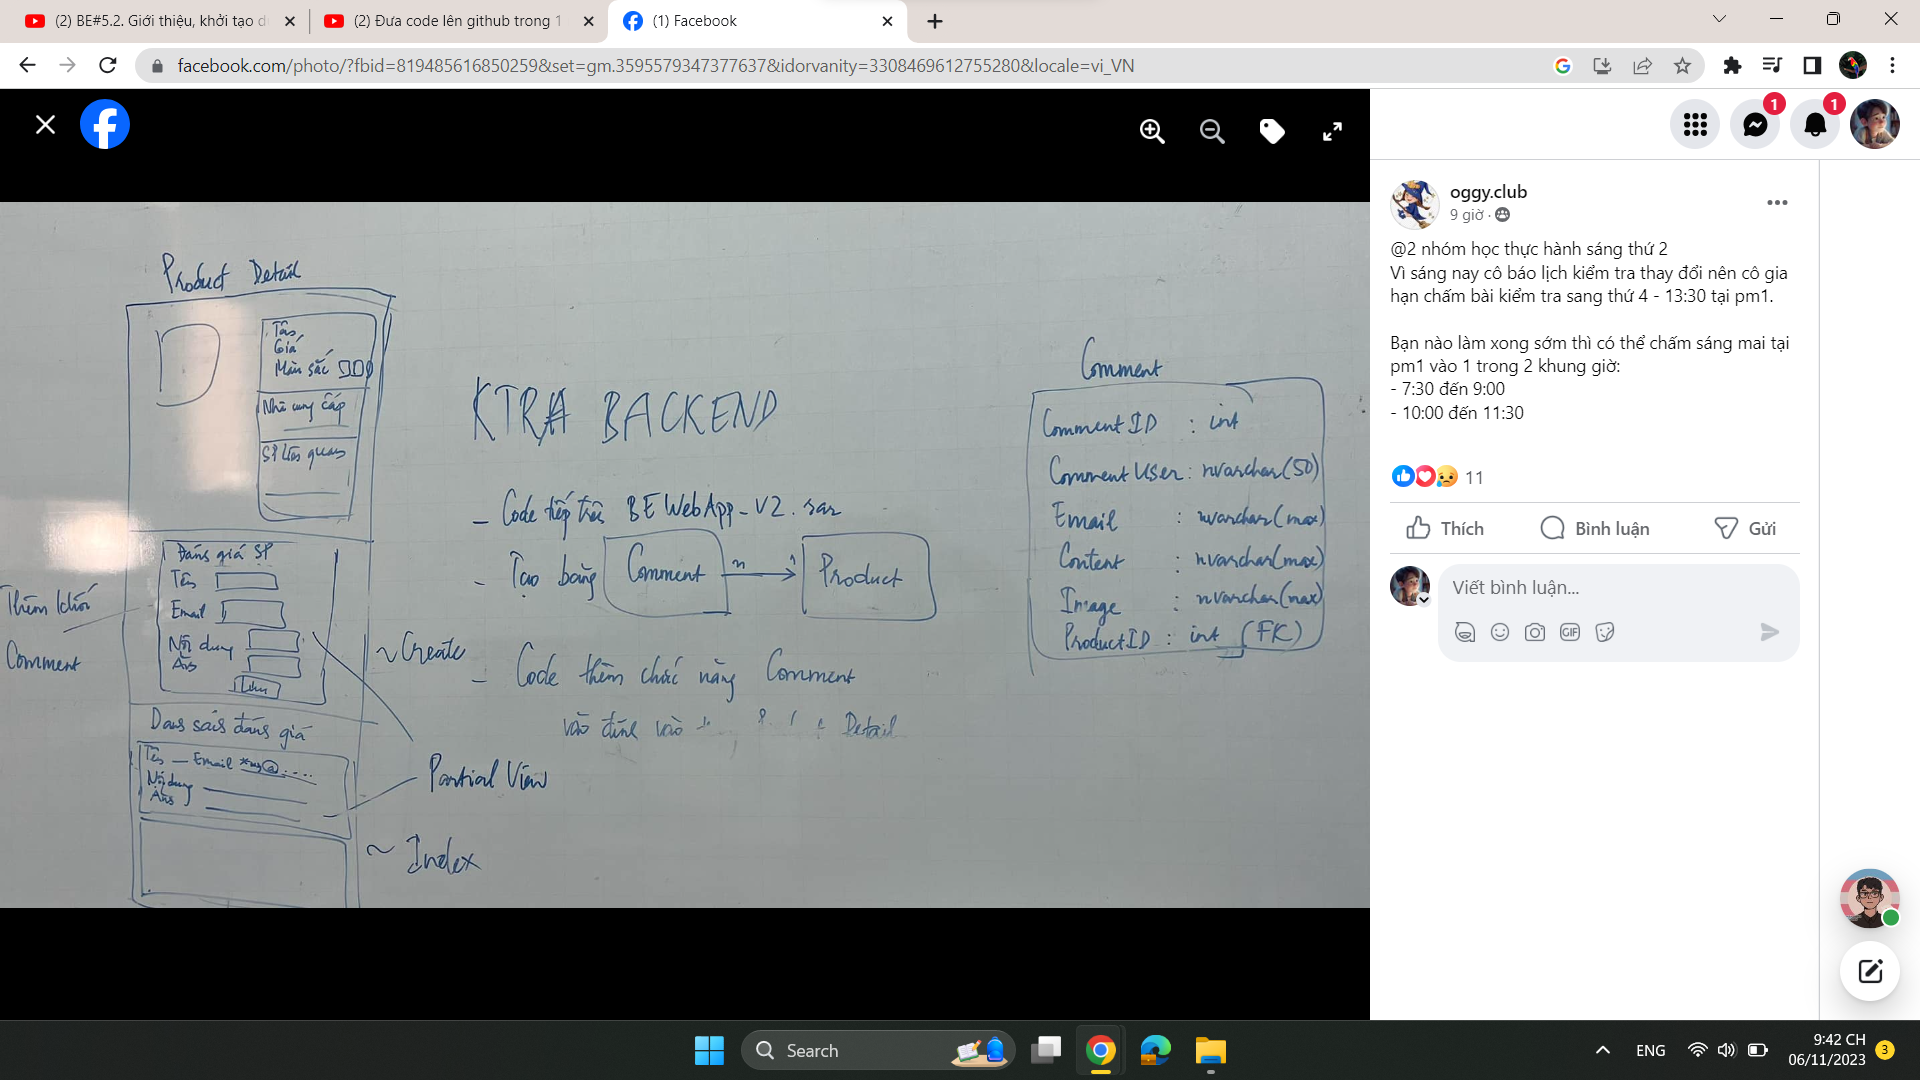 (2) BE#5.2. Giới thiệu, khởi tạo d
(2) Đưa code lên github trong 1
(1) Facebook
facebook.com/photo/?fbid=819485616850259&set=gm.3595579347377637&idorvanity=3308469612755280&locale=vi_VN
1
1
Product Detail
Tên
Giá
Màu sắc
Nhà cung cấp
SP liên quan
Đánh giá SP
Tên
Email
Nội dung
Ảnh
Lưu
Thêm khối
Comment
~ Create
Danh sách đánh giá
Tên - Email
Nội dung
Ảnh
Partial View
~ Index
KTRA BACKEND
- Code tiếp trên BEWebApp_V2.rar
- Tạo bảng Comment n 1 Product
- Code thêm chức năng Comment
vào Detail
Comment
CommentID : int
CommentUser : nvarchar(50)
Email : nvarchar(max)
Content : nvarchar(max)
Image : nvarchar(max)
ProductID : int (FK)
oggy.club
9 giờ ·
@2 nhóm học thực hành sáng thứ 2
Vì sáng nay cô báo lịch kiểm tra thay đổi nên cô gia
hạn chấm bài kiểm tra sang thứ 4 - 13:30 tại pm1.
Bạn nào làm xong sớm thì có thể chấm sáng mai tại
pm1 vào 1 trong 2 khung giờ:
- 7:30 đến 9:00
- 10:00 đến 11:30
11
Thích
Bình luận
Gửi
Viết bình luận...
GIF
Search
ENG
9:42 CH
06/11/2023
3